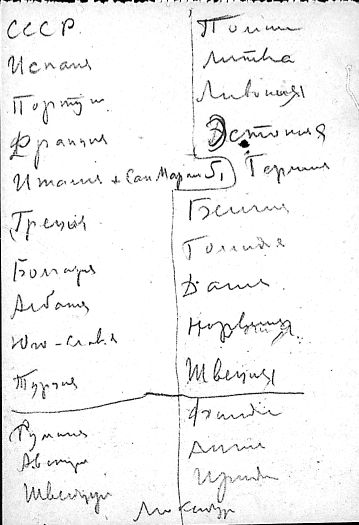 СССР
Испания
Португ
Франция
Италия + Сан Марин
Греция
Болгария
Албания
Юго-Славия
Турция
Румыния
Австр
Швейцар
Польша
Литва
Ливония
Эстония
Германия
Бельгия
Голландия
Дания
Норвегия
Швеция
Финлян
Англия
Ирлан
Люксембур